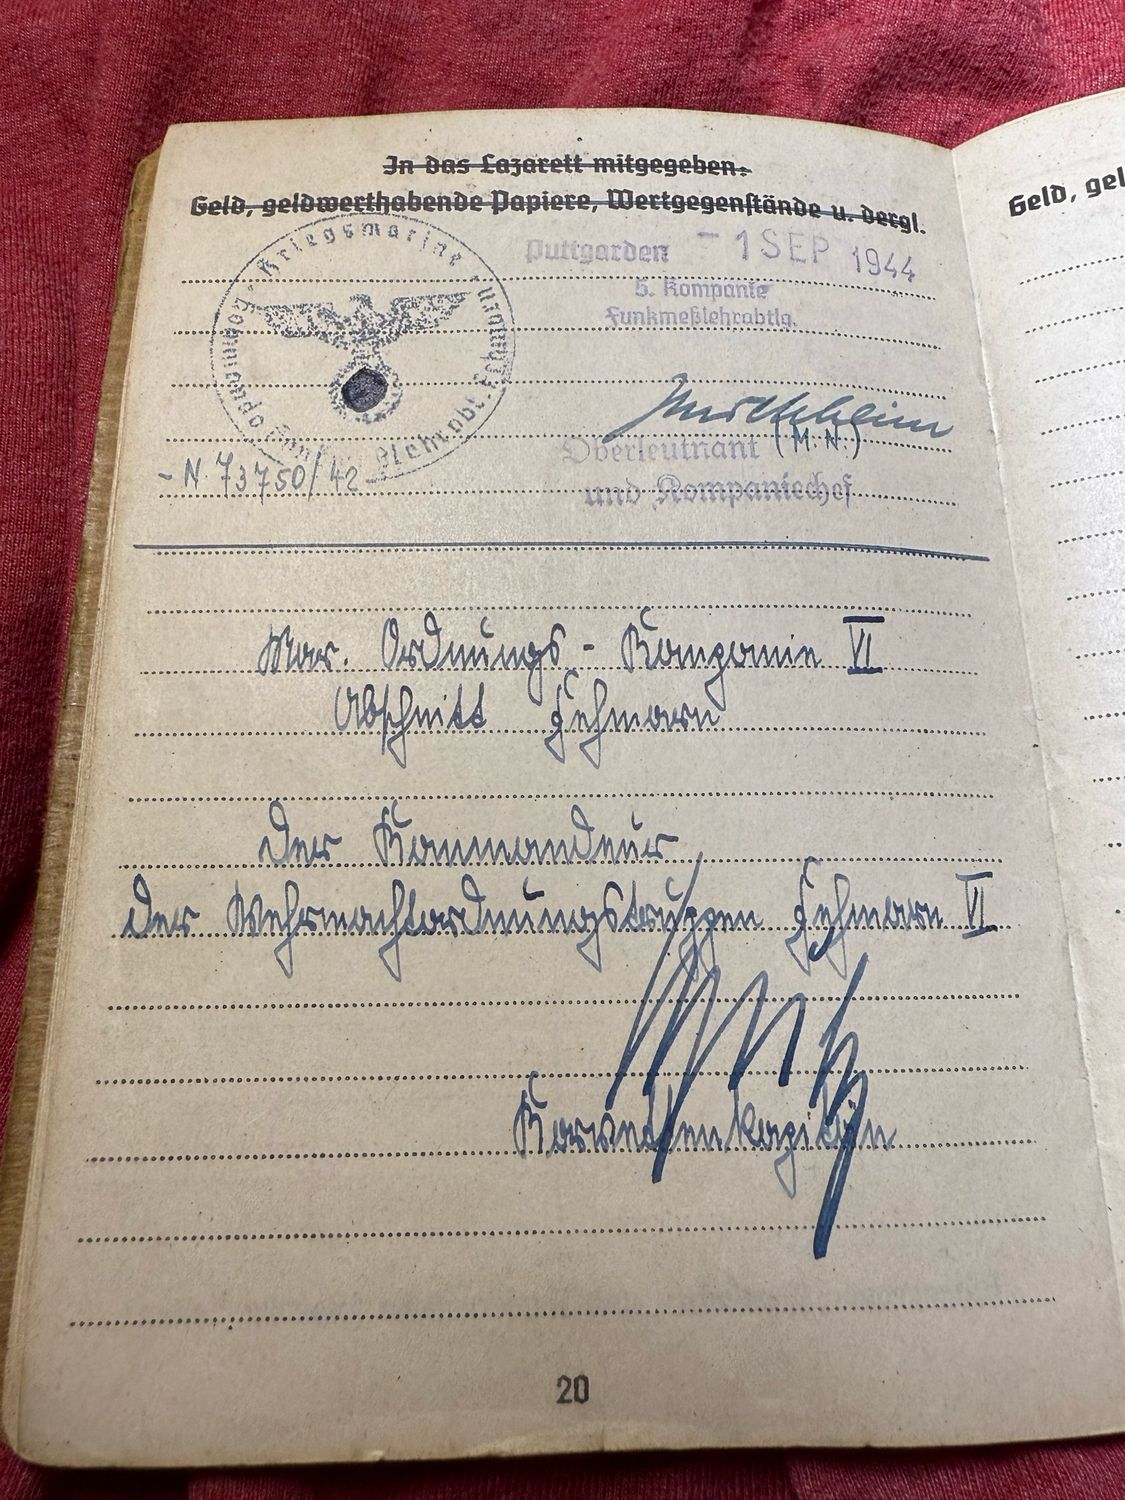 In das Lazarett mitgegeben:
Geld, geldwerthabende Papiere, Wertgegenstände u. dergl.
Kriegsmarine
Puttgarden - 1 SEP 1944
5. Kompanie
Funkmeßlehrabtlg.
(M.N.)
Oberleutnant
und Kompaniechef
- N 73750/42 -
Mar. Ordnungs - Kompanie VI
Abschnitt Fehmarn
Der Kommandeur
der Wehrmachtordnungstruppen Fehmarn VI
Korvettenkapitän
20
Geld, gel